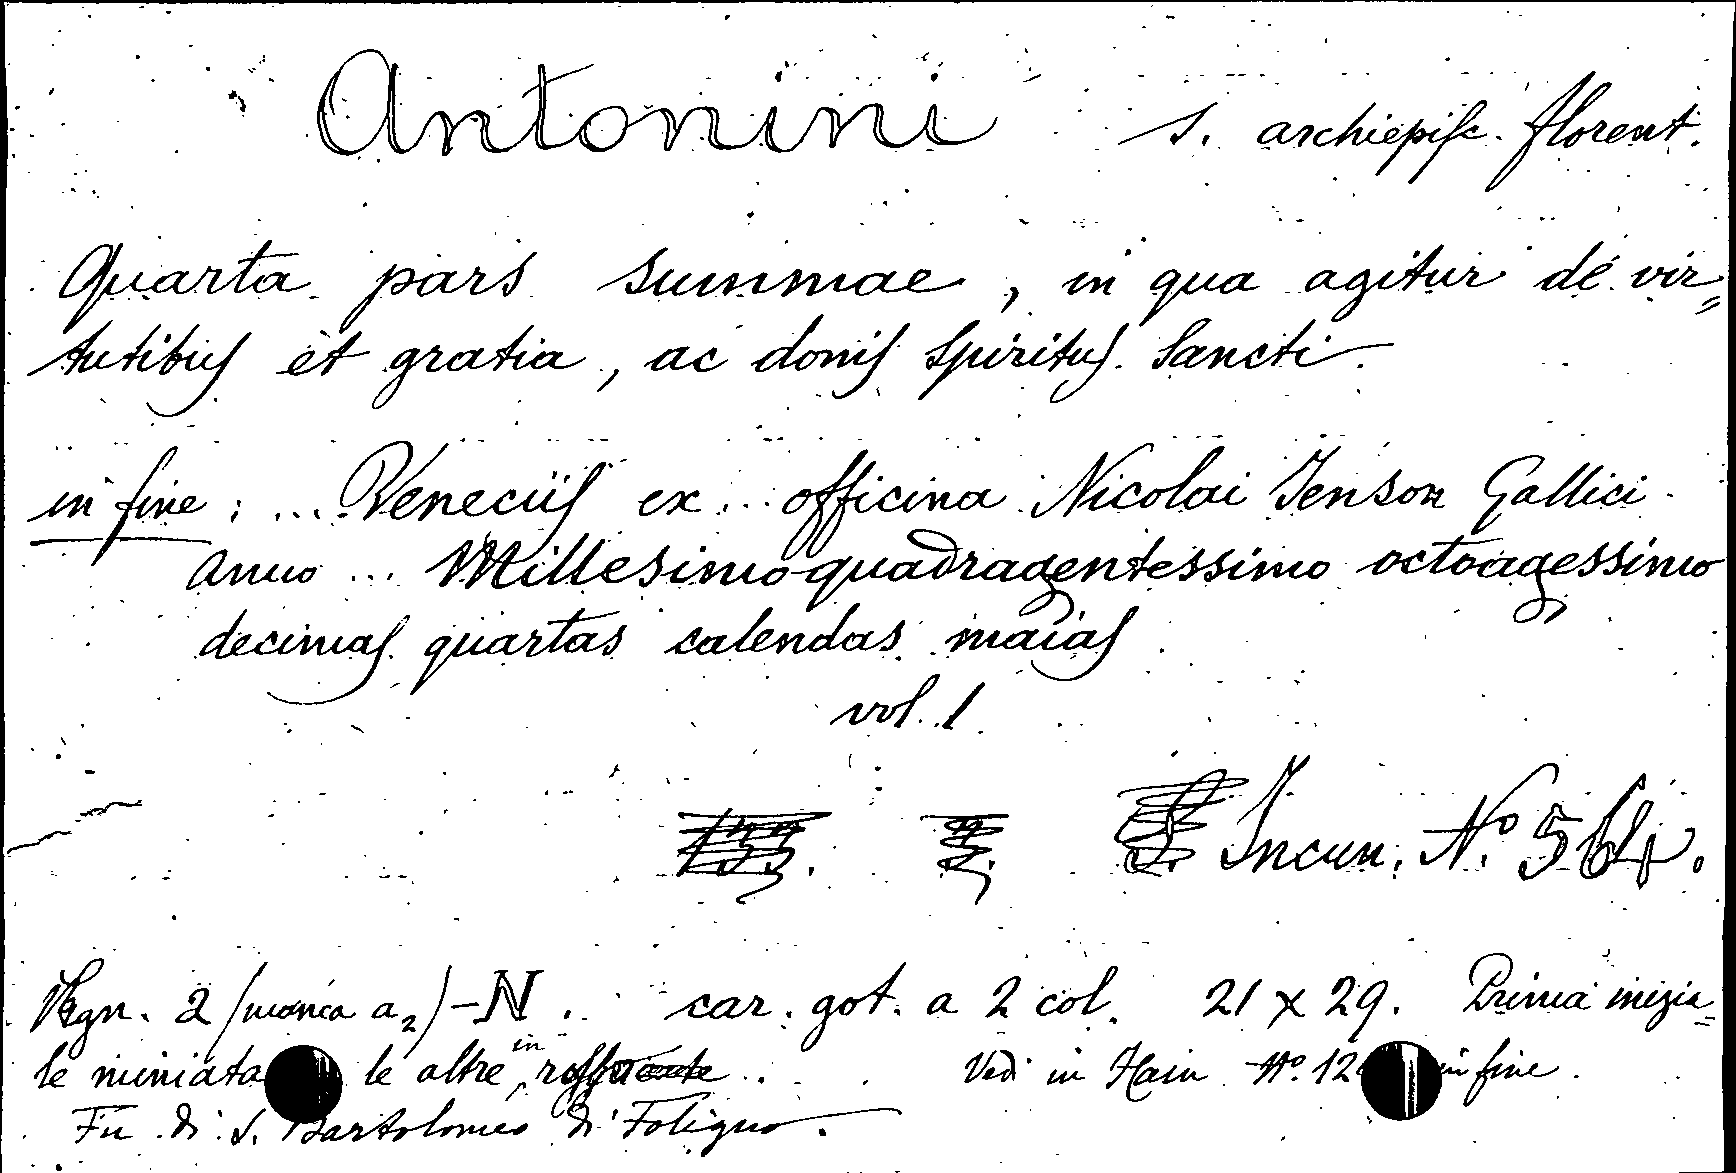 Antonini S. archiepisc. florent.
Quarta pars summae, in qua agitur de vir=
tutibus et gratia, ac donis Spiritus Sancti.
in fine: ... Veneciis ex officina Nicolai Jenson Gallici
anno ... Millesimo quadragentessimo octoagessimo
decimas quartas calendas maias
vol. 1
Incun. N.º 564.
Segn. a (manca a2) - N. car. got. a 2 col. 21 x 29. Prima inizia=
le miniata le altre in rosso. Vedi in Hain Nº. 12 in fine.
Fu di S. Bartolomeo di Foligno.